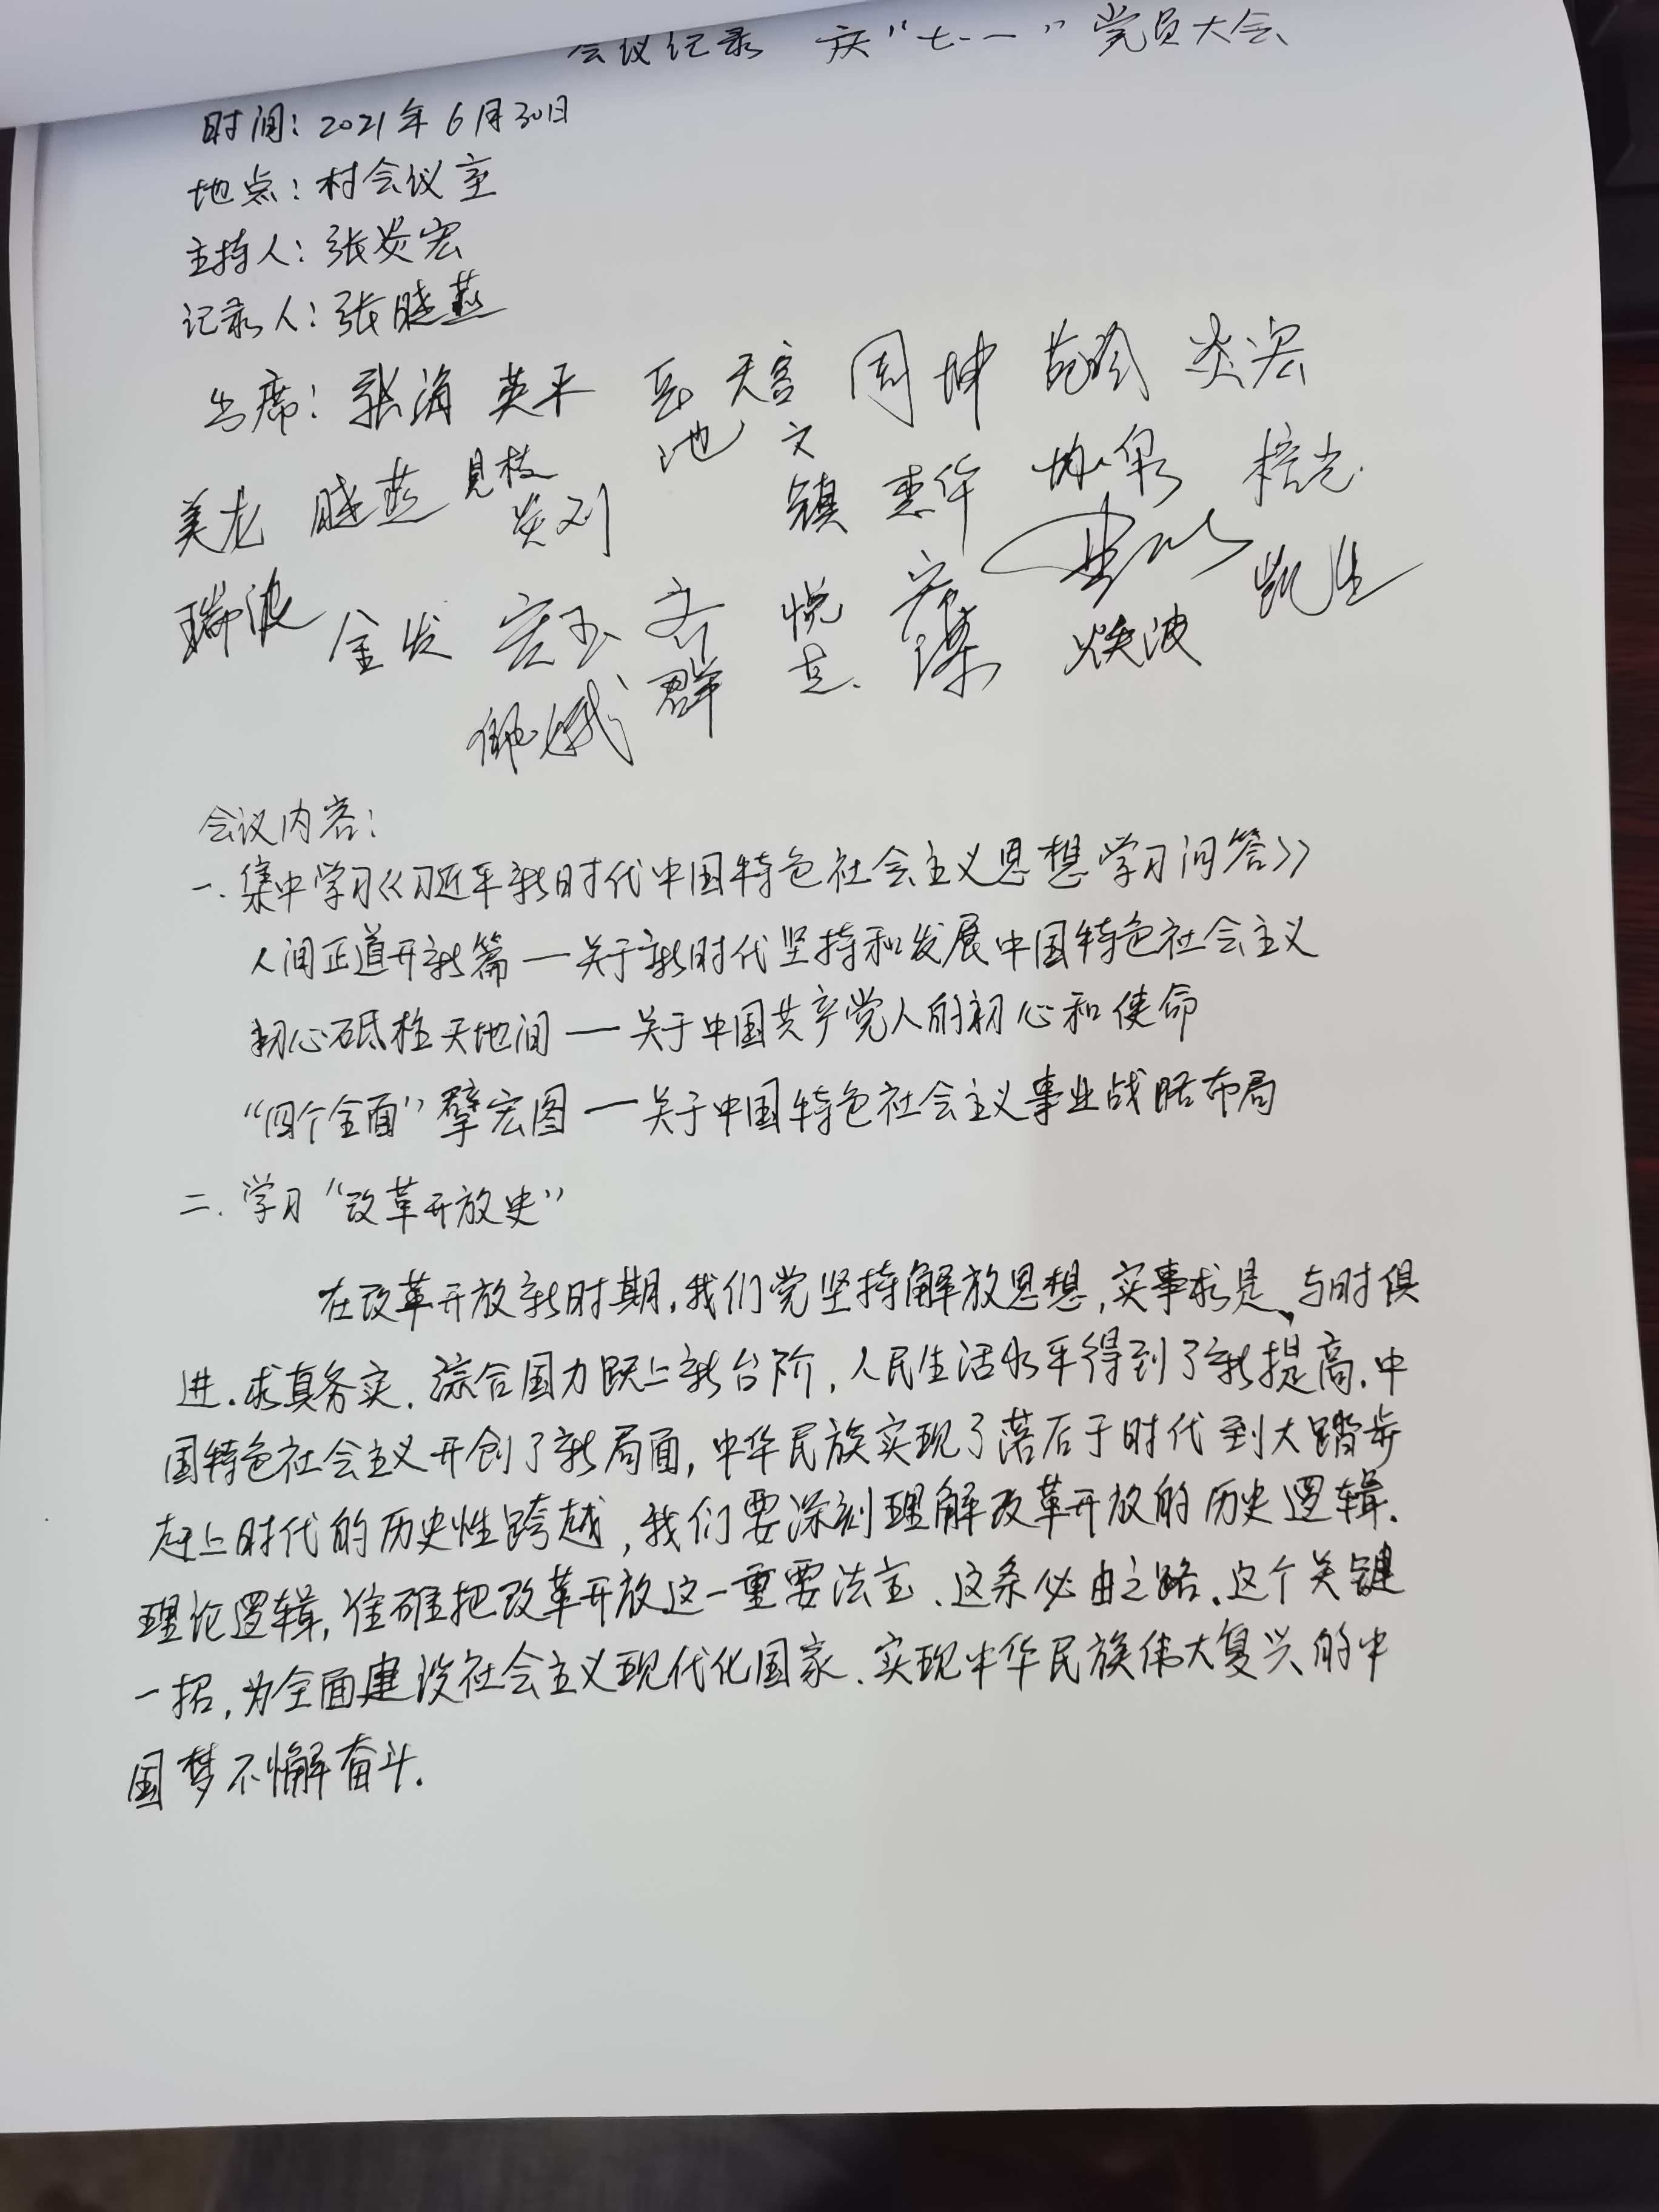 会议记录 庆“七·一”党员大会
时间：2021年6月30日
地点：村会议室
主持人：张炎宏
记录人：张晓燕
出席：张海 英平 岳 天宫 周坤 炎宏
池 文
美龙 晓燕 見枝 镇 惠华 梧光
炎刘
瑞波 金发 宏玉 悦 凯生
群 志 焕波
会议内容：
一.集中学习《习近平新时代中国特色社会主义思想学习问答》
人间正道开新篇——关于新时代坚持和发展中国特色社会主义
初心砥柱天地间——关于中国共产党人的初心和使命
“四个全面”擘宏图——关于中国特色社会主义事业战略布局
二.学习“改革开放史”
在改革开放新时期,我们党坚持解放思想,实事求是、与时俱
进.求真务实.综合国力跃上新台阶,人民生活水平得到了新提高.中
国特色社会主义开创了新局面,中华民族实现了落后于时代到大踏步
赶上时代的历史性跨越,我们要深刻理解改革开放的历史逻辑.
理论逻辑,准确把改革开放这一重要法宝、这条必由之路.这个关键
一招,为全面建设社会主义现代化国家、实现中华民族伟大复兴的中
国梦不懈奋斗.